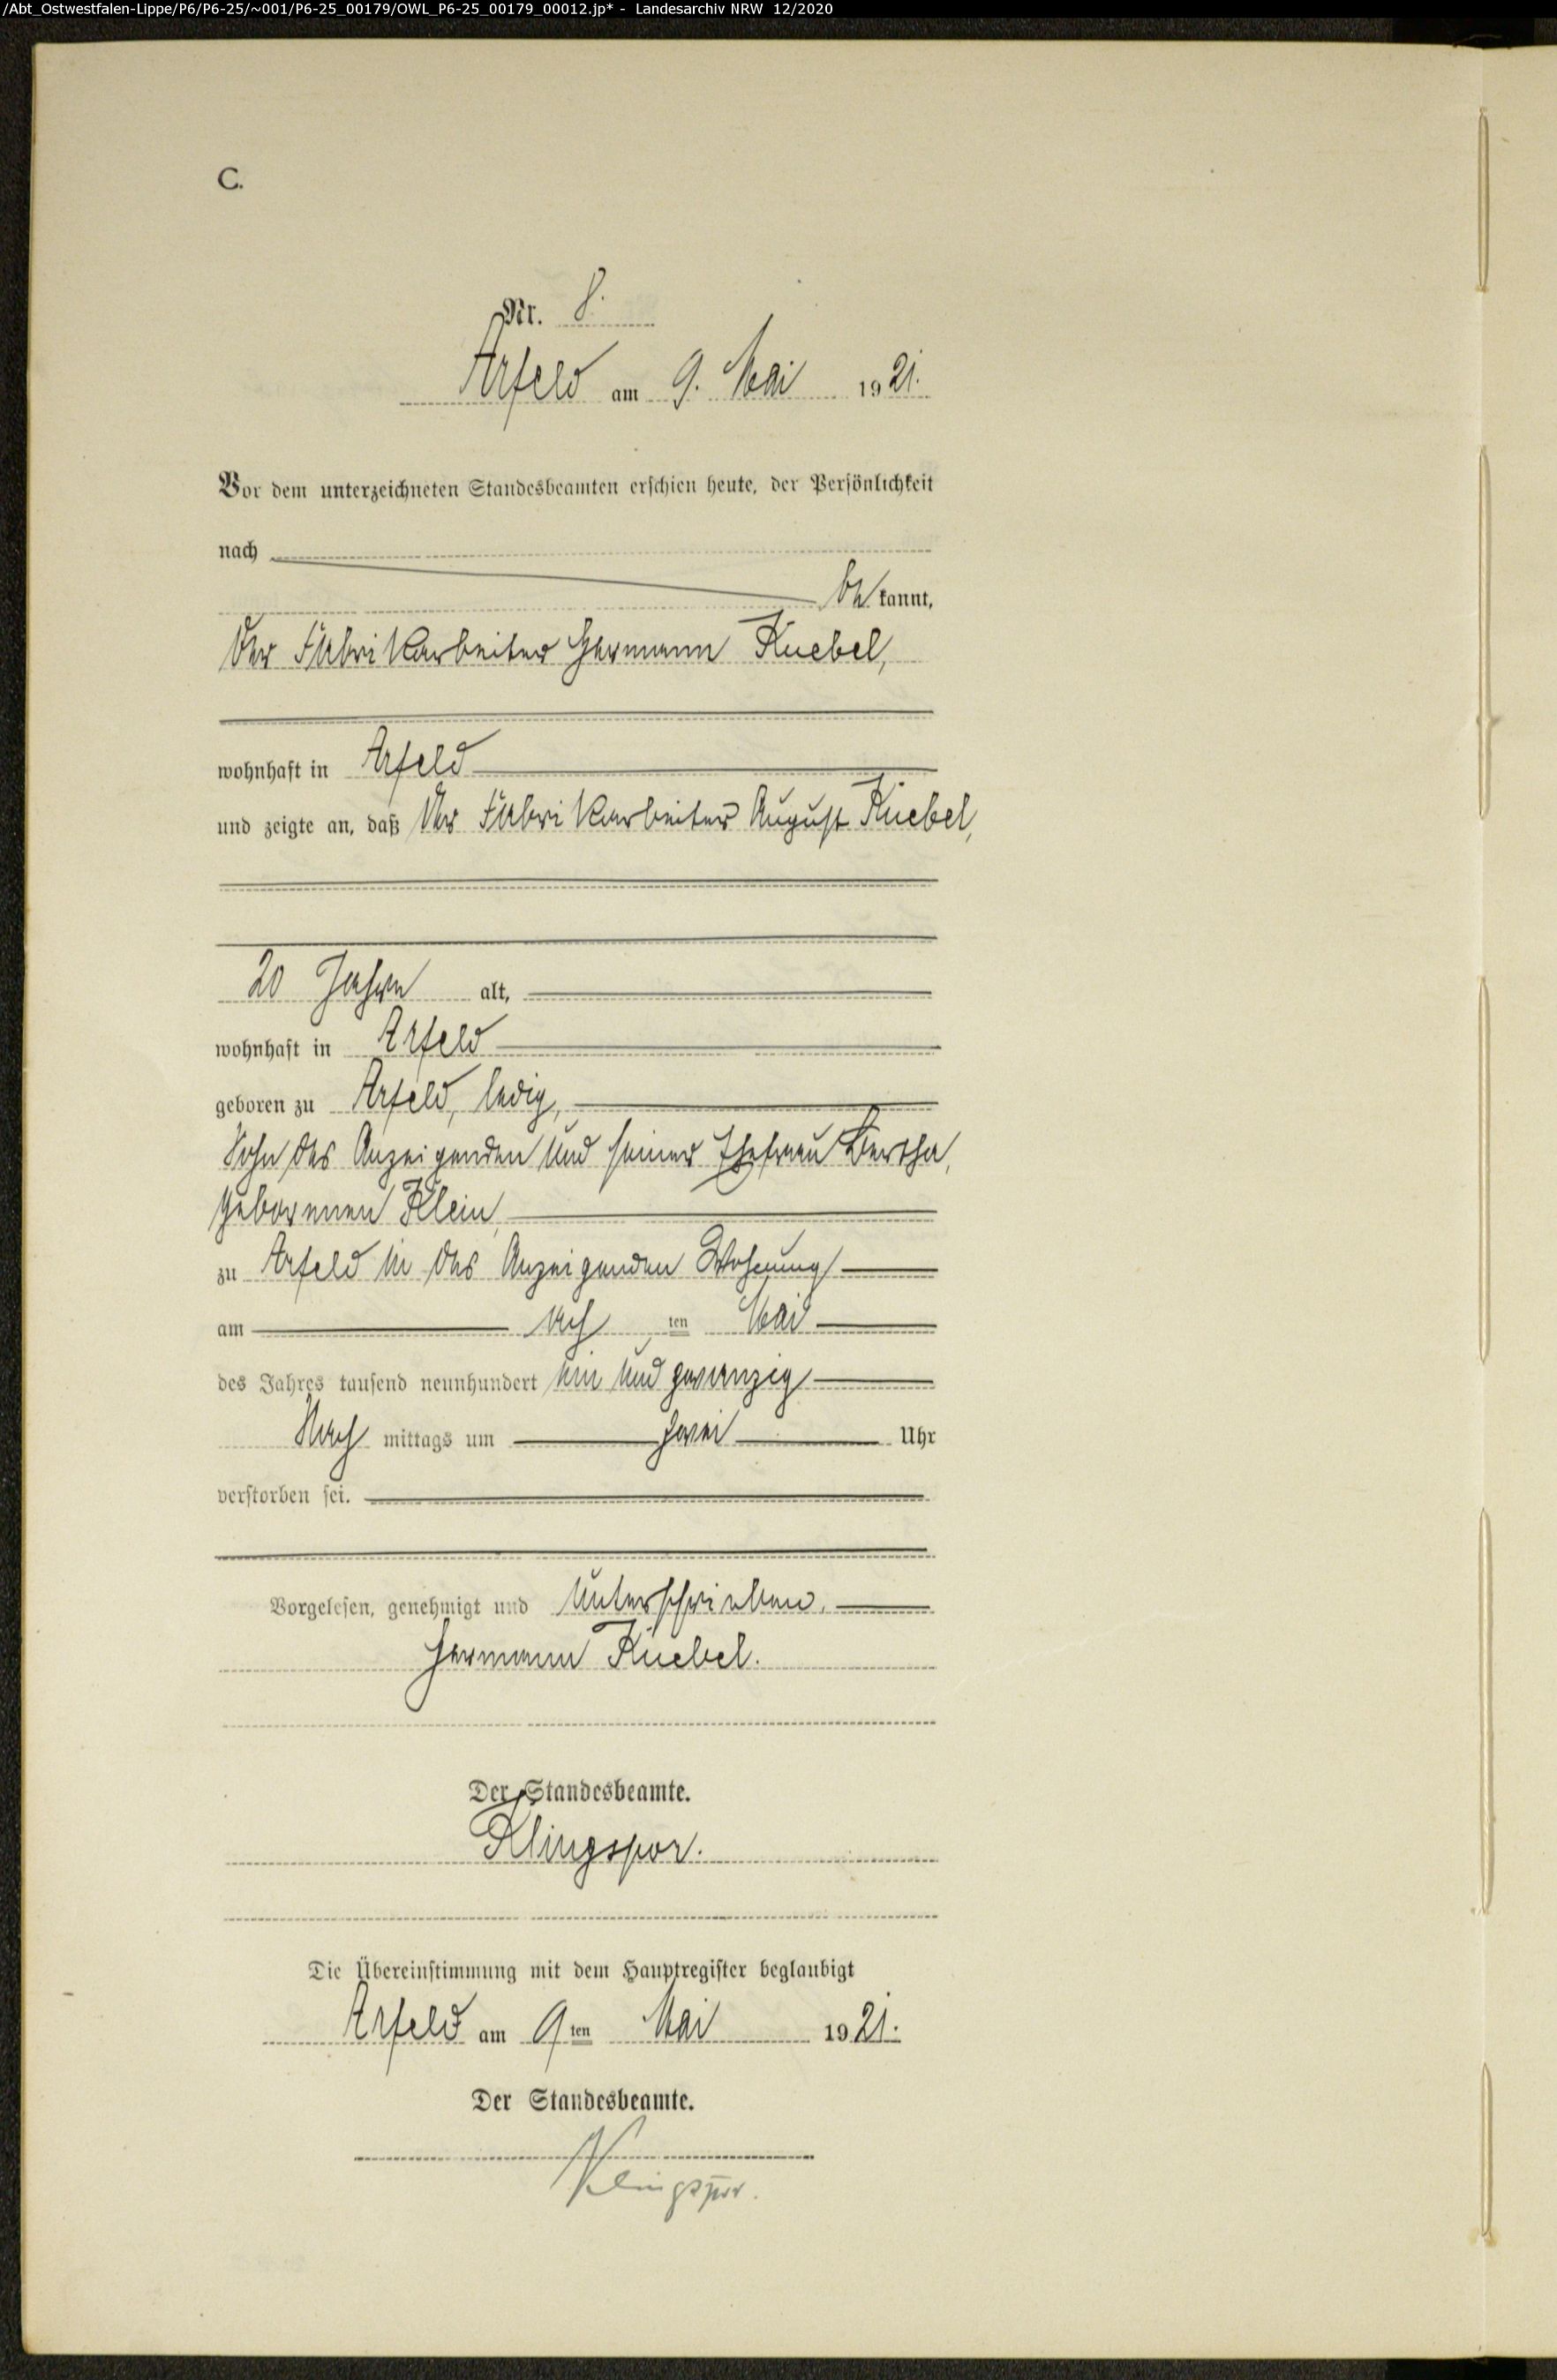 /Abt_Ostwestfalen-Lippe/P6/P6-25/~001/P6-25_00179/OWL_P6-25_00179_00012.jp* - Landesarchiv NRW 12/2020
C.
Nr. 8.
Arfeld am 9. Mai 1921.
Vor dem unterzeichneten Standesbeamten erschien heute, der Persönlichkeit
nach
be kannt,
der Fabrikarbeiter Hermann Kuebel,
wohnhaft in Arfeld
und zeigte an, daß der Fabrikarbeiter August Kuebel,
20 Jahre alt,
wohnhaft in Arfeld
geboren zu Arfeld, ledig,
Sohn des Anzeigenden und seiner Ehefrau Bertha,
geborenen Klein,
zu Arfeld in des Anzeigenden Wohnung
am acht ten Mai
des Jahres tausend neunhundert ein und zwanzig
Nach mittags um zwei Uhr
verstorben sei.
Vorgelesen, genehmigt und unterschrieben.
Hermann Kuebel.
Der Standesbeamte.
Klingspor.
Die Übereinstimmung mit dem Hauptregister beglaubigt
Arfeld am 9ten Mai 1921.
Der Standesbeamte.
Klingspor.